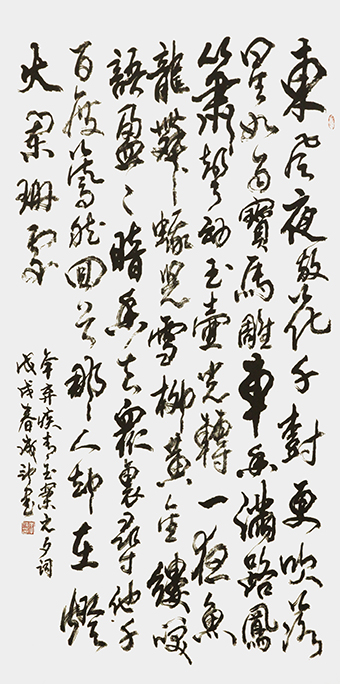 東風夜放花千樹更吹落
星如雨寶馬雕車香滿路鳳
簫聲動玉壺光轉一夜魚
龍舞蛾兒雪柳黃金縷笑
語盈〻暗香去眾裏尋他千
百度驀然回首那人卻在燈
火闌珊處
辛棄疾青玉案元夕詞
戊戌春書